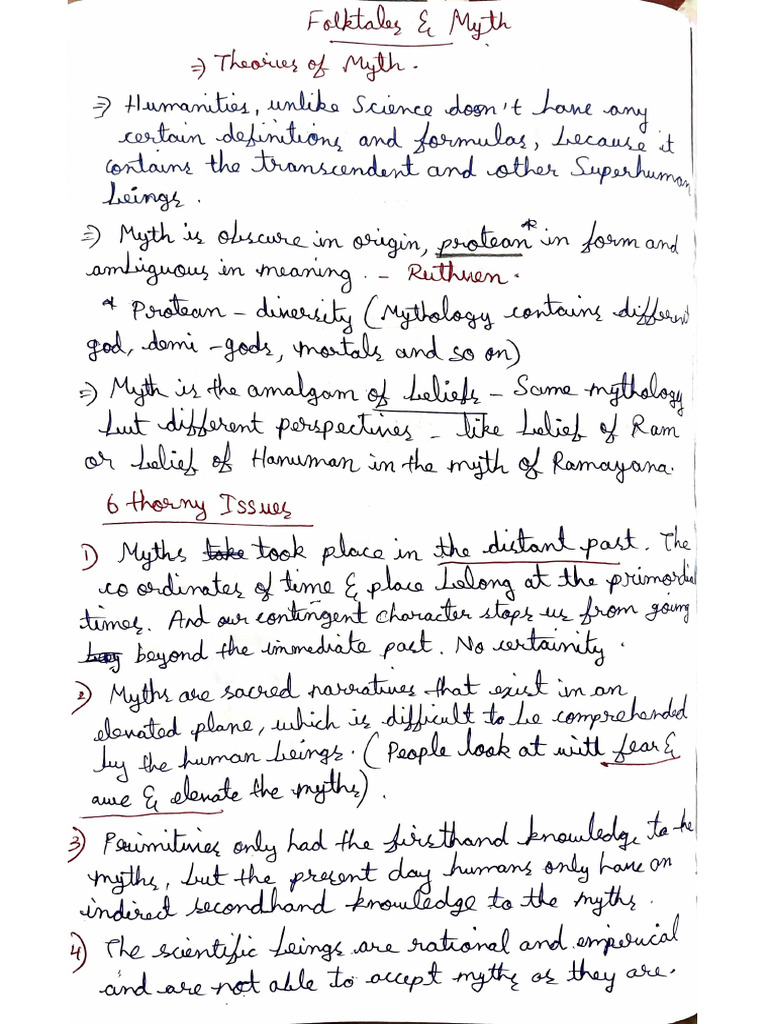 Folktales & Myth
⇒ Theories of Myth.
⇒ Humanities, unlike Science doesn't have any
certain definitions and formulas, because it
contains the transcendent and other Superhuman
beings.
⇒ Myth is obscure in origin, protean* in form and
ambiguous in meaning. - Ruthven.
* Protean - diversity (Mythology contains different
god, demi-gods, mortals and so on)
⇒ Myth is the amalgam of beliefs - Same mythology
but different perspectives - like belief of Ram
or belief of Hanuman in the myth of Ramayana.
6 thorny Issues
1) Myths take took place in the distant past. The
co ordinates of time & place belong at the primordial
times. And our contingent character stops us from going
beyond the immediate past. No certainity.
2) Myths are sacred narratives that exist in an
elevated plane, which is difficult to be comprehended
by the human beings. (People look at with fear &
awe & elevate the myths).
3) Primitives only had the firsthand knowledge to the
myths, but the present day humans only have an
indirect secondhand knowledge to the myths.
4) The scientific beings are rational and emperical
and are not able to accept myths as they are.